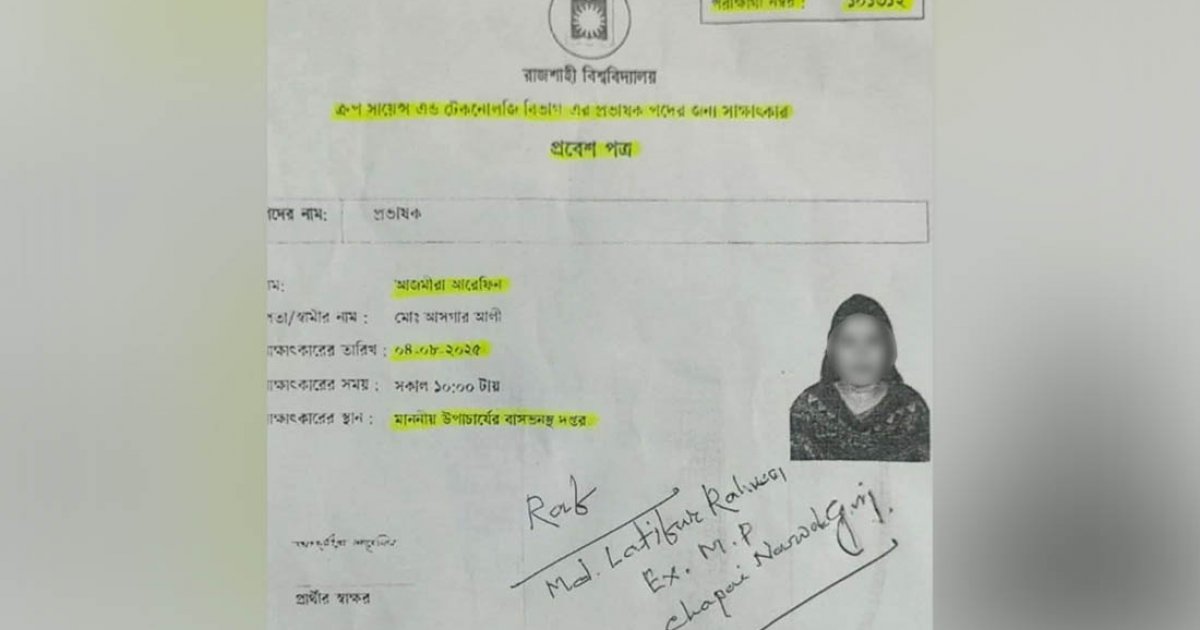 পরীক্ষার্থী নম্বর :
রাজশাহী বিশ্ববিদ্যালয়
ক্রপ সায়েন্স এন্ড টেকনোলজি বিভাগ এর প্রভাষক পদের জন্য সাক্ষাৎকার
প্রবেশ পত্র
পদের নাম: প্রভাষক
নাম: আজমীরা আরেফিন
পিতা/স্বামীর নাম : মোঃ আসগার আলী
সাক্ষাৎকারের তারিখ : ০৪-০৮-২০২৫
সাক্ষাৎকারের সময় : সকাল ১০:০০ টায়
সাক্ষাৎকারের স্থান : মাননীয় উপাচার্যের বাসভবনস্থ দপ্তর
Md. Latifur Rahman
Ex. M.P
Chapai Nawabgonj.
প্রার্থীর স্বাক্ষর